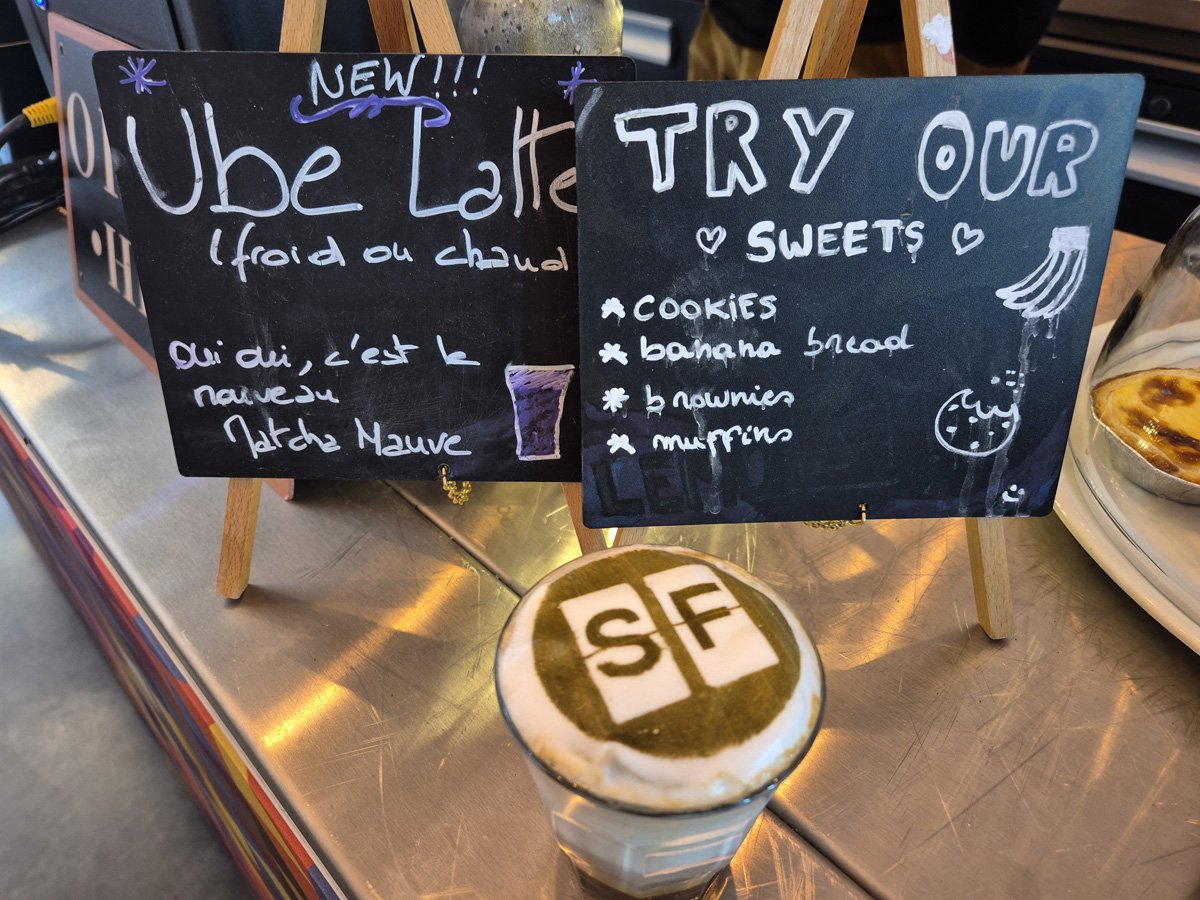 NEW!!!
Ube Latte
(froid ou chaud
Oui oui, c'est le
nouveau
Matcha Mauve
TRY OUR
SWEETS
COOKIES
banana bread
brownies
muffins
SF